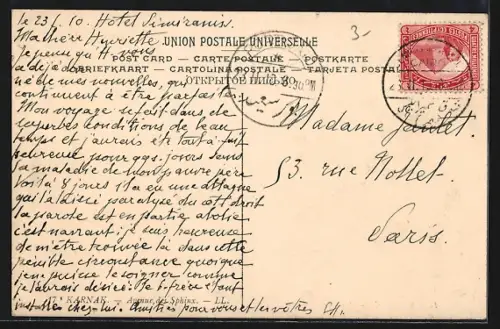 le 23/5. 10. Hôtel Sémiramis.
Ma chère Henriette
3-
UNION POSTALE UNIVERSELLE
POST CARD — CARTE POSTALE — POSTKARTE
BRIEFKAART — CARTOLINA POSTALE — TARJETA POSTAL
Je pense qu'H vous
a déjà
de mes nouvelles, qui
continuent à être parfaites.
Mon voyage se fait dans de
superbes conditions de beau
temps et j'aurais été tout à fait
heureuse pour qqs. jours sans
la maladie de mon pauvre père
Voilà 8 jours il a eu une attaque
qui l'a laissé paralysé du côté droit
la parole est en partie abolie
c'est navrant ; je suis heureuse
de m'être trouvée là dans cette
pénible circonstance quoique
je ne puisse le soigner comme
je l'aurais désiré le frère étant
installé chez lui. Amitiés pour vous et les vôtres
Madame
53. rue Nollet.
Paris.
17. KARNAK. — Avenue des Sphinx. — LL.